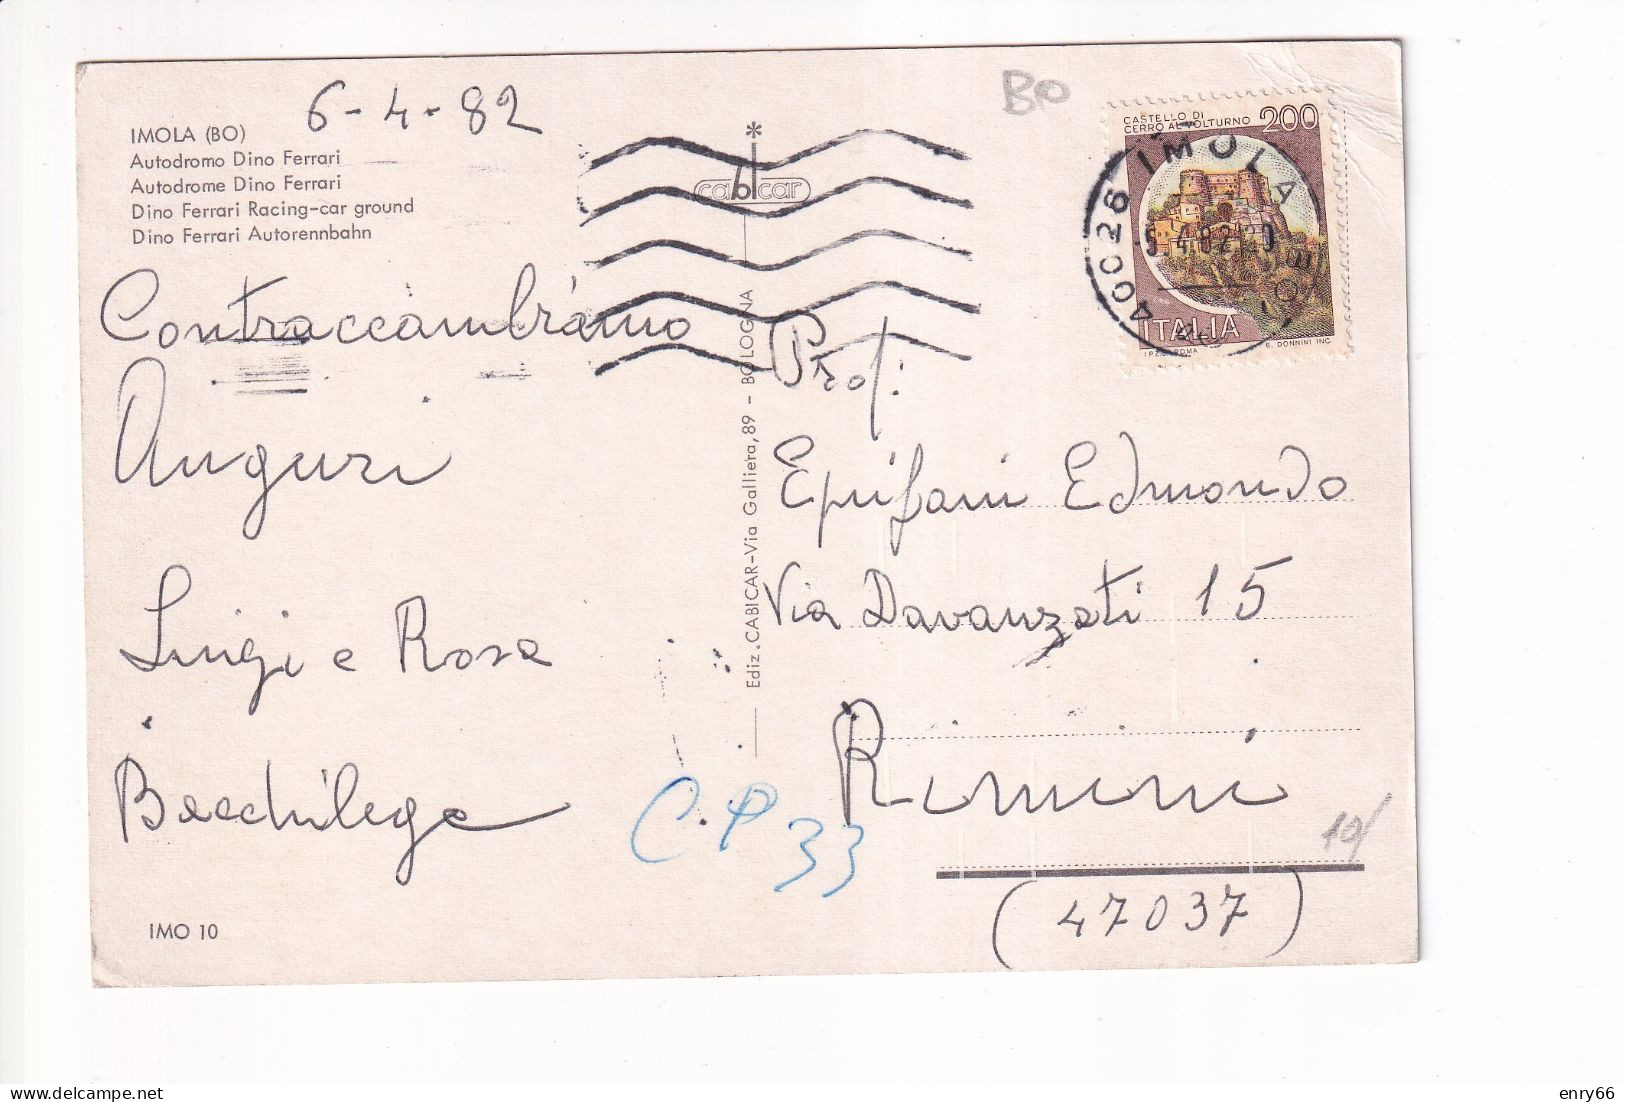 6-4-82
IMOLA (BO)
Autodromo Dino Ferrari
Autodrome Dino Ferrari
Dino Ferrari Racing-car ground
Dino Ferrari Autorennbahn
Contraccambiamo
Auguri
Luigi e Rosa
Bacchilega
IMO 10
cabicar
Ediz. CABICAR-Via Galliera, 89 - BOLOGNA
BO
CASTELLO DI
CERRO AL VOLTURNO 200
ITALIA
I.P.Z.S. ROMA E. DONNINI INC.
40026 IMOLA
4.82
Prof:
Epifani Edmondo
Via Davanzati 15
Rimini
(47037)
C.P 33
10/
enry66